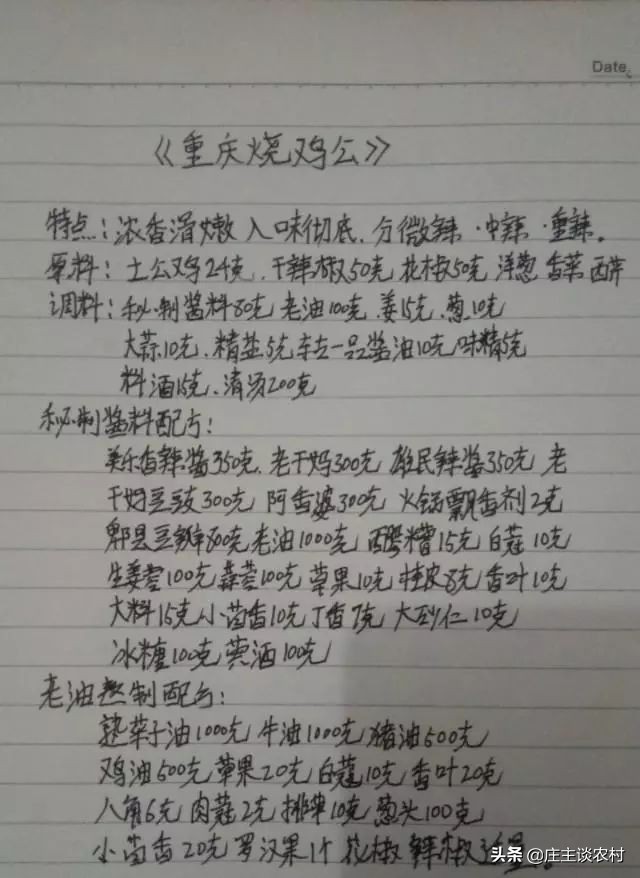 Date.
《重庆烧鸡公》
特点：浓香滑嫩 入味彻底. 分微辣·中辣·重辣。
原料：土公鸡24克, 干辣椒50克 花椒50克 洋葱 香菜 西芹
调料：秘制酱料80克 老油100克 姜15克 葱10克
大蒜10克、精盐5克 一品酱油10克 味精5克
料酒15克、清汤200克
秘制酱料配方：
美乐香辣酱350克. 老干妈300克 辣酱350克 老
干妈豆豉300克 阿香婆300克 火锅飘香剂2克
郫县豆瓣80克 老油1000克 醪糟15克 白蔻10克
生姜蓉100克 蒜蓉100克 草果10克 桂皮8克 香叶10克
大料15克 小茴香10克 丁香7克 大砂仁10克
冰糖100克 黄酒100克
老油熬制配方：
熟菜子油1000克 牛油1000克 猪油500克
鸡油500克 草果20克 白蔻10克 香叶20克
八角6克 肉蔻2克 排草10克 葱头100克
小茴香20克 罗汉果1个 花椒 辣椒适量。
头条 @庄主谈农村